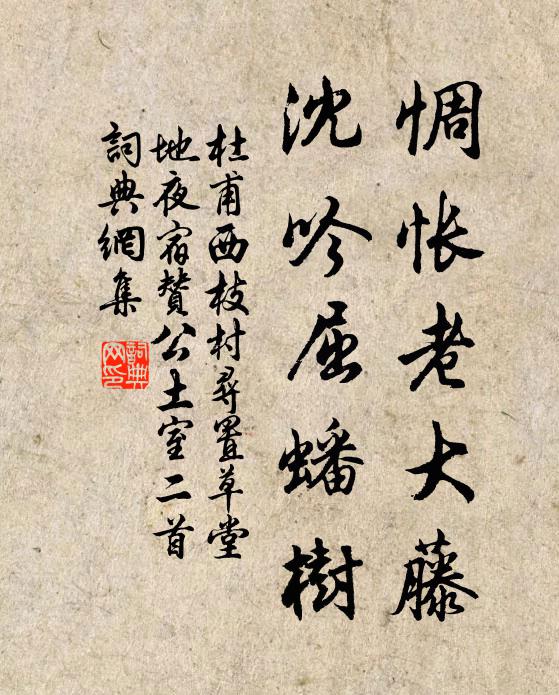 惆怅老大藤
沈吟屈蟠樹
杜甫西枝村尋置草堂
地夜宿贊公土室二首
詞典網集
詞典
网印